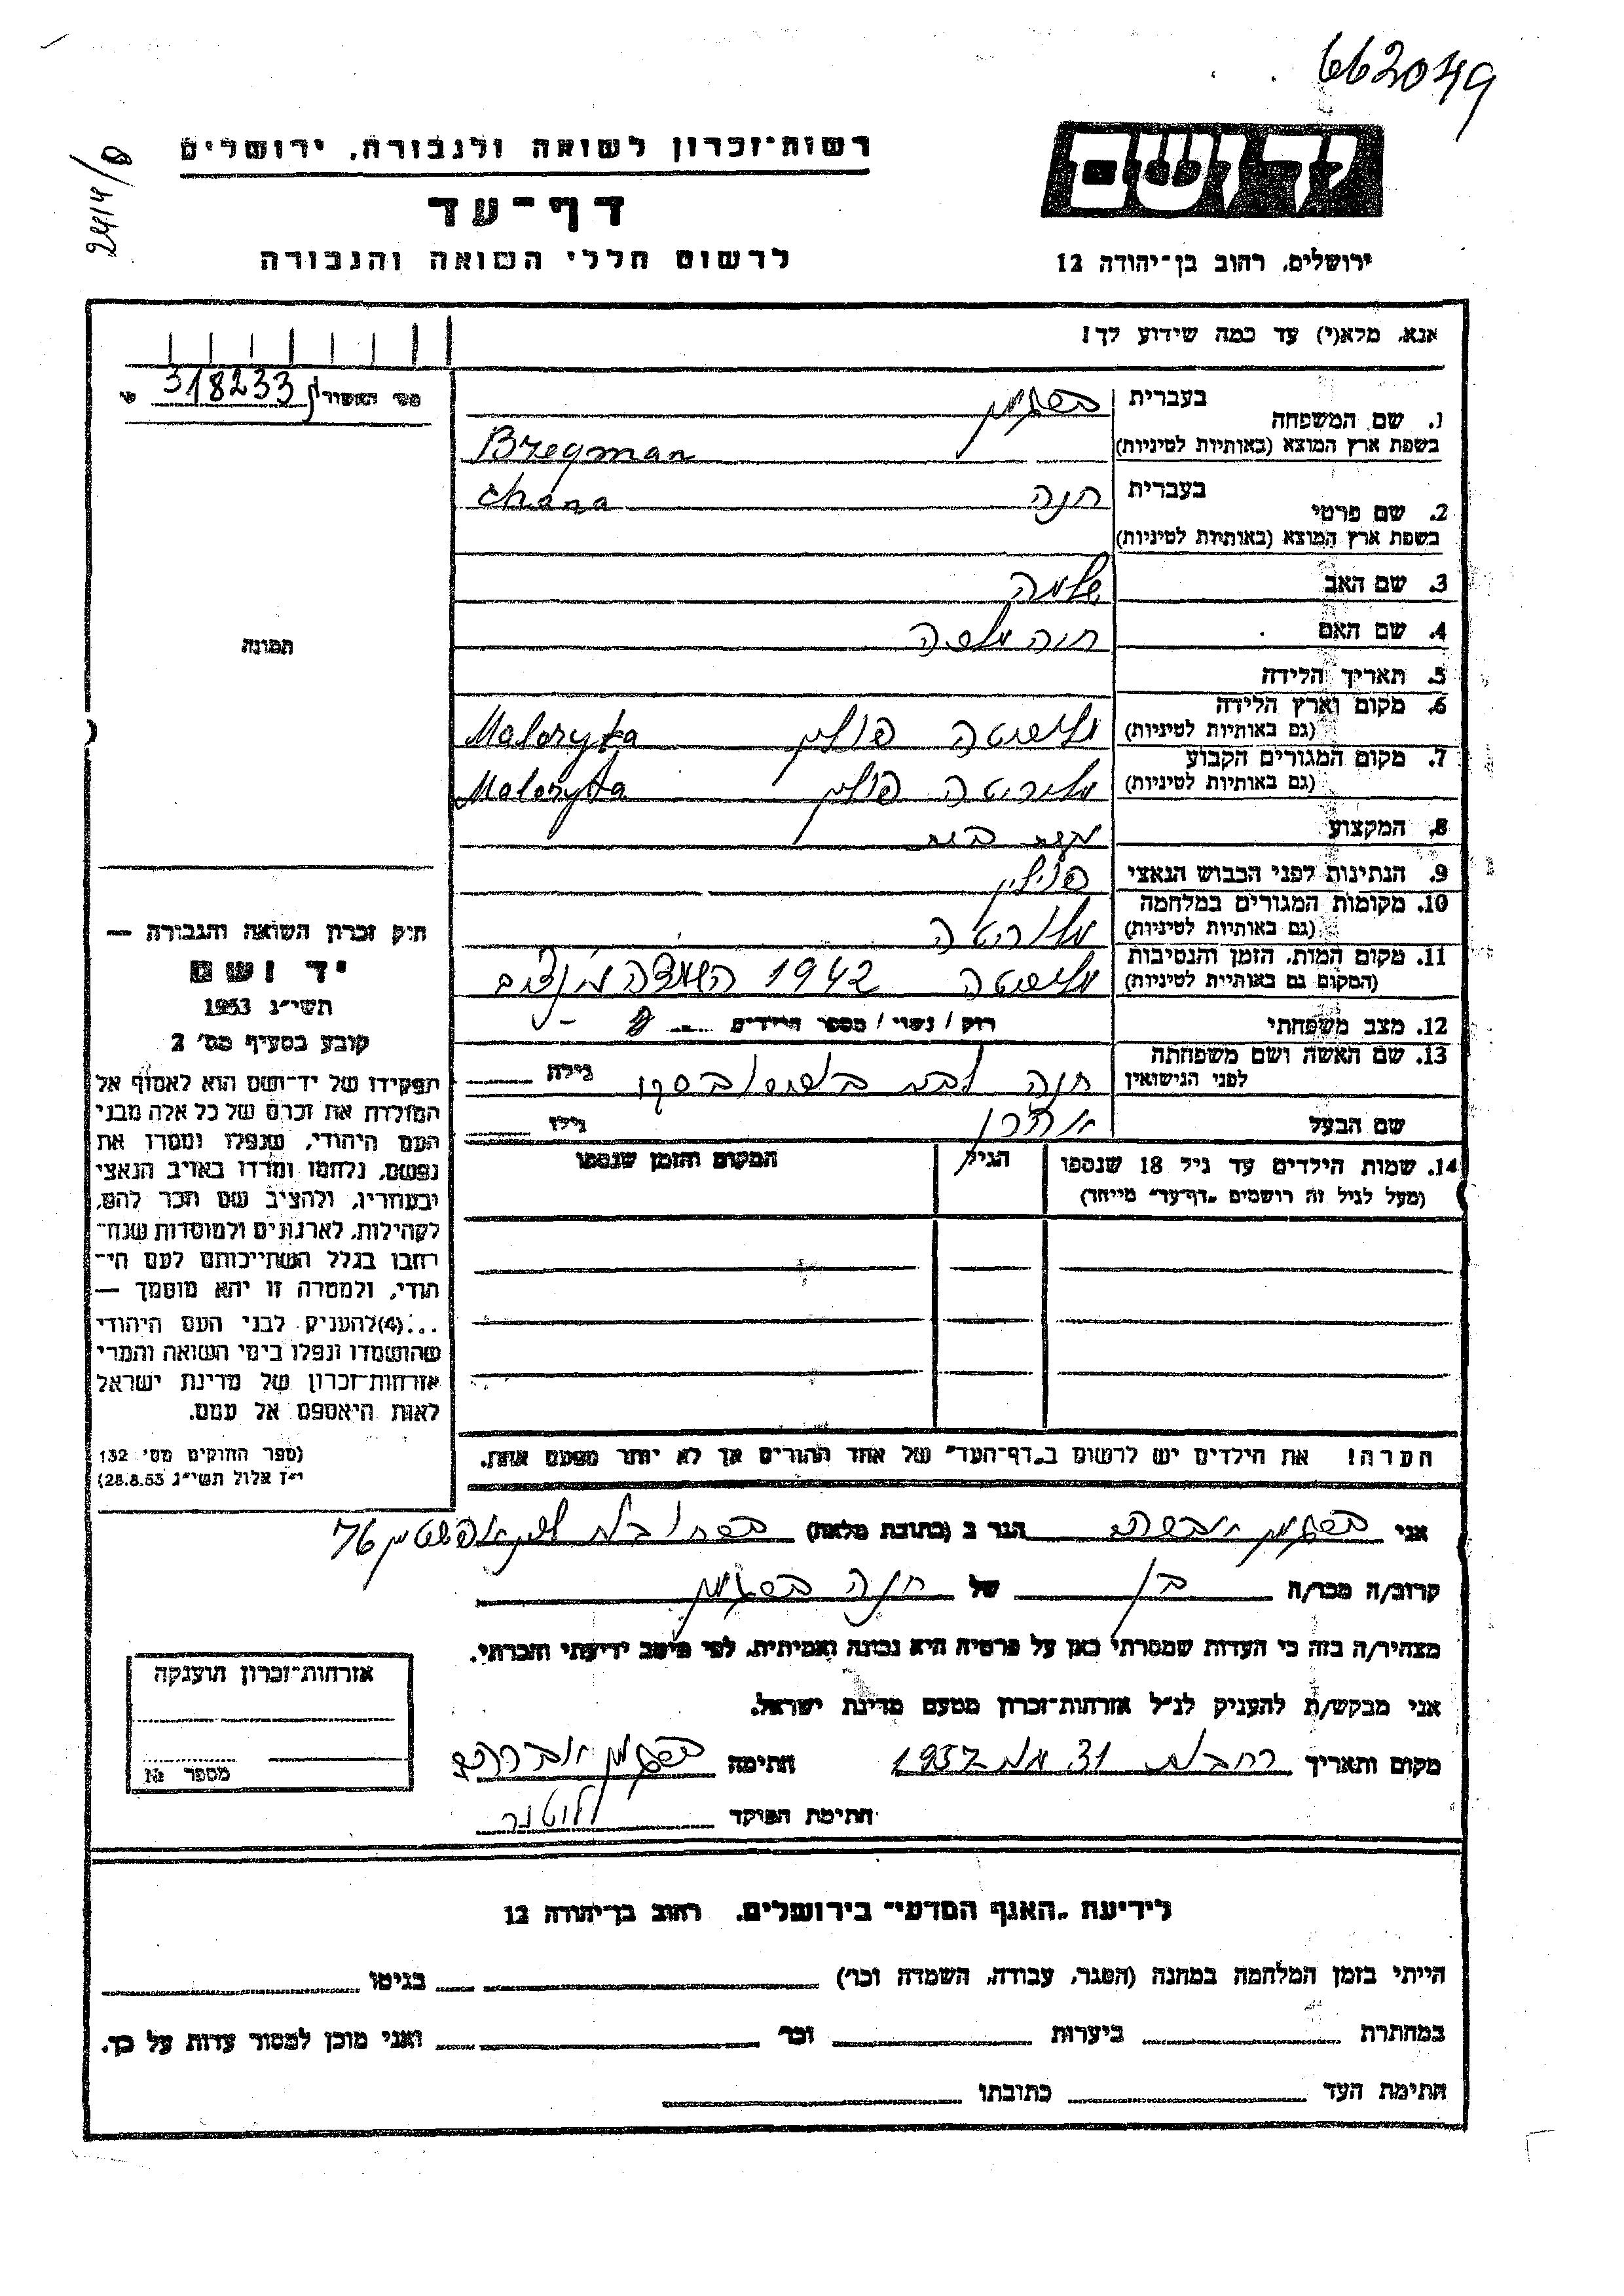 662049
2414/8
רשות-זכרון לשואה ולגבורה, ירושלים
דף-עד
לרשום חללי השואה והגבורה
יד ושם
ירושלים, רחוב בן-יהודה 12
אנא, מלא(י) עד כמה שידוע לך!
מס' האשורן 318233
1. שם המשפחה
בעברית ברגמן
בשפת ארץ המוצא (באותיות לטיניות) Bregman
2. שם פרטי
בעברית חנה Chana
בשפת ארץ המוצא (באותיות לטיניות)
3. שם האב שלמה
4. שם האם חיה
5. תאריך הלידה
6. מקום וארץ הלידה
(גם באותיות לטיניות) מלוריטה פולין Maloryta
7. מקום המגורים הקבוע
(גם באותיות לטיניות) מלוריטה פולין Maloryta
8. המקצוע עקרת בית
9. הנתינות לפני הכבוש הנאצי פולין
10. מקומות המגורים במלחמה
(גם באותיות לטיניות) מלוריטה
11. מקום המות, הזמן והנסיבות
(המקום גם באותיות לטיניות) מלוריטה 1942
12. מצב משפחתי רווק / נשוי / מספר הילדים
13. שם האשה ושם משפחתה
לפני הנישואין חנה לבית גילה
שם הבעל אהרן גילו
14. שמות הילדים עד גיל 18 שנספו הגיל המקום והזמן שנספו
(מעל לגיל זה רושמים "דף-עד" מיוחד)
תמונה
חוק זכרון השואה והגבורה —
יד ושם
תשי"ג 1953
קובע בסעיף מס' 2
תפקידו של יד-ושם הוא לאסוף אל
המולדת את זכרם של כל אלה מבני
העם היהודי, שנפלו ומסרו את
נפשם, נלחמו ומרדו באויב הנאצי
ובעוזריו, ולהציב שם וזכר להם,
לקהילות, לארגונים ולמוסדות שנח-
רבו בגלל השתייכותם לעם הי-
הודי, ולמטרה זו יהא מוסמך —
...(4)להעניק לבני העם היהודי
שהושמדו ונפלו בימי השואה והמרי
אזרחות-זכרון של מדינת ישראל
לאות היאספם אל עמם.
(ספר החוקים מס' 132
י"ז אלול תשי"ג 28.8.53)
הערה! את הילדים יש לרשום ב"דף-העד" של אחד ההורים אך לא יותר מפעם אחת.
אני ברגמן אברהם הגר ב (כתובת מלאה) ברחובות 76
קרוב/ה מכר/ה בן של חנה ברגמן
מצהיר/ה בזה כי העדות שמסרתי כאן על פרטיה היא נכונה ואמיתית, לפי מיטב ידיעתי והכרתי.
אני מבקש/ת להעניק לנ"ל אזרחות-זכרון מטעם מדינת ישראל.
מקום ותאריך רחבות 31 1957 חתימה ברגמן אברהם
חתימת הפוקד
אזרחות-זכרון הוענקה
מספר №
לידיעת "האגף המדעי" בירושלים, רחוב בן-יהודה 12
הייתי בזמן המלחמה במחנה (הסגר, עבודה, השמדה וכו') בגיטו
במחתרת ביערות וכו' ואני מוכן למסור עדות על כך.
חתימת העד כתובתו